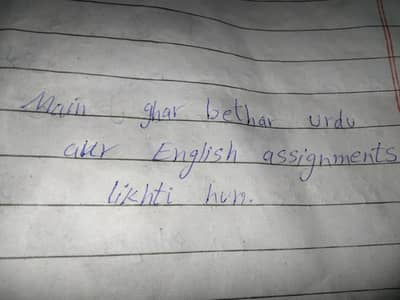 Main ghar bethar urdu
aur English assignments
likhti hun.